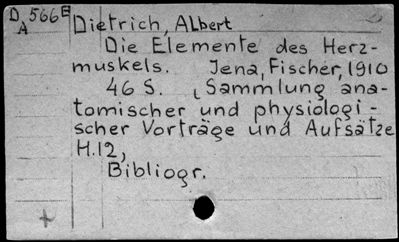 D 566 E Dietrich, Albert
A
Die Elemente des Herz-
muskels. Jena, Fischer, 1910
46 S. (Sammlung ana-
tomischer und physiologi-
scher Vorträge und Aufsätze
H.12,
Bibliogr.